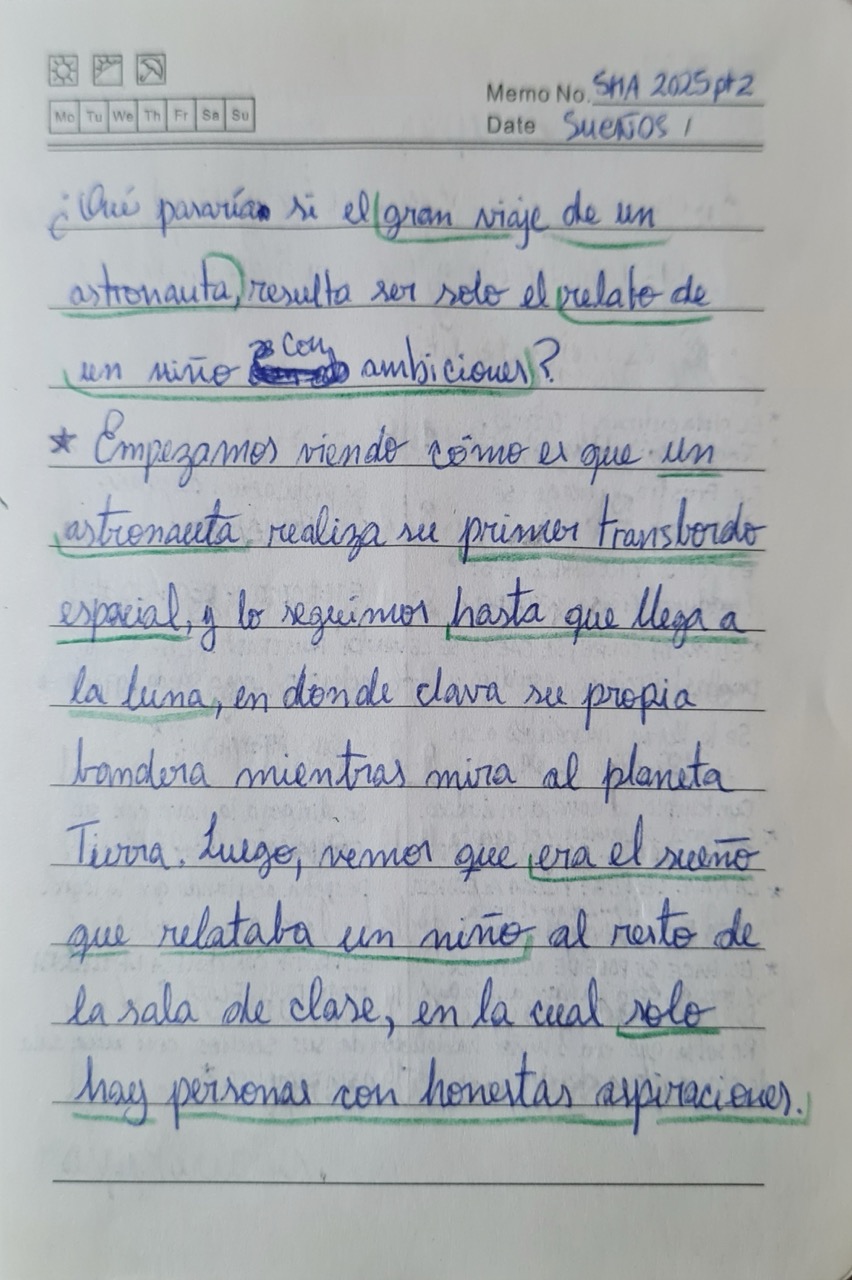 Memo No. SHA 2025 pt2
Mo Tu We Th Fr Sa Su
Date SUEÑOS 1
¿Qué pasaría si el gran viaje de un
astronauta, resulta ser solo el relato de
un niño con ambiciones?
* Empezamos viendo cómo es que un
astronauta realiza su primer transbordo
espacial, y lo seguimos hasta que llega a
la luna, en donde clava su propia
bandera mientras mira al planeta
Tierra. Luego, vemos que era el sueño
que relataba un niño al resto de
la sala de clase, en la cual solo
hay personas con honestas aspiraciones.